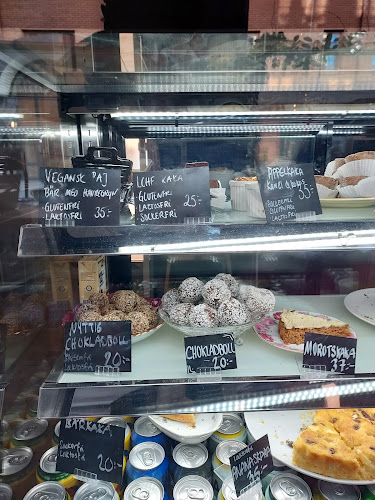 VEGANSK PAJ
BÄR MED HAVREDEGEN
GLUTENFRI
LAKTOSFRI 35:-
LCHF KAKA
GLUTENFRI 25:-
LAKTOSFRI
SOCKERFRI
ÄPPELKAKA
35:-
NYTTIG
CHOKLADBOLL
LAKTOSFRI 20:-
CHOKLADBOLL
20:-
MOROTSKAKA
37:-
BÄRKAKA
SOCKERFRI
LAKTOSFRI
20:-
35:-